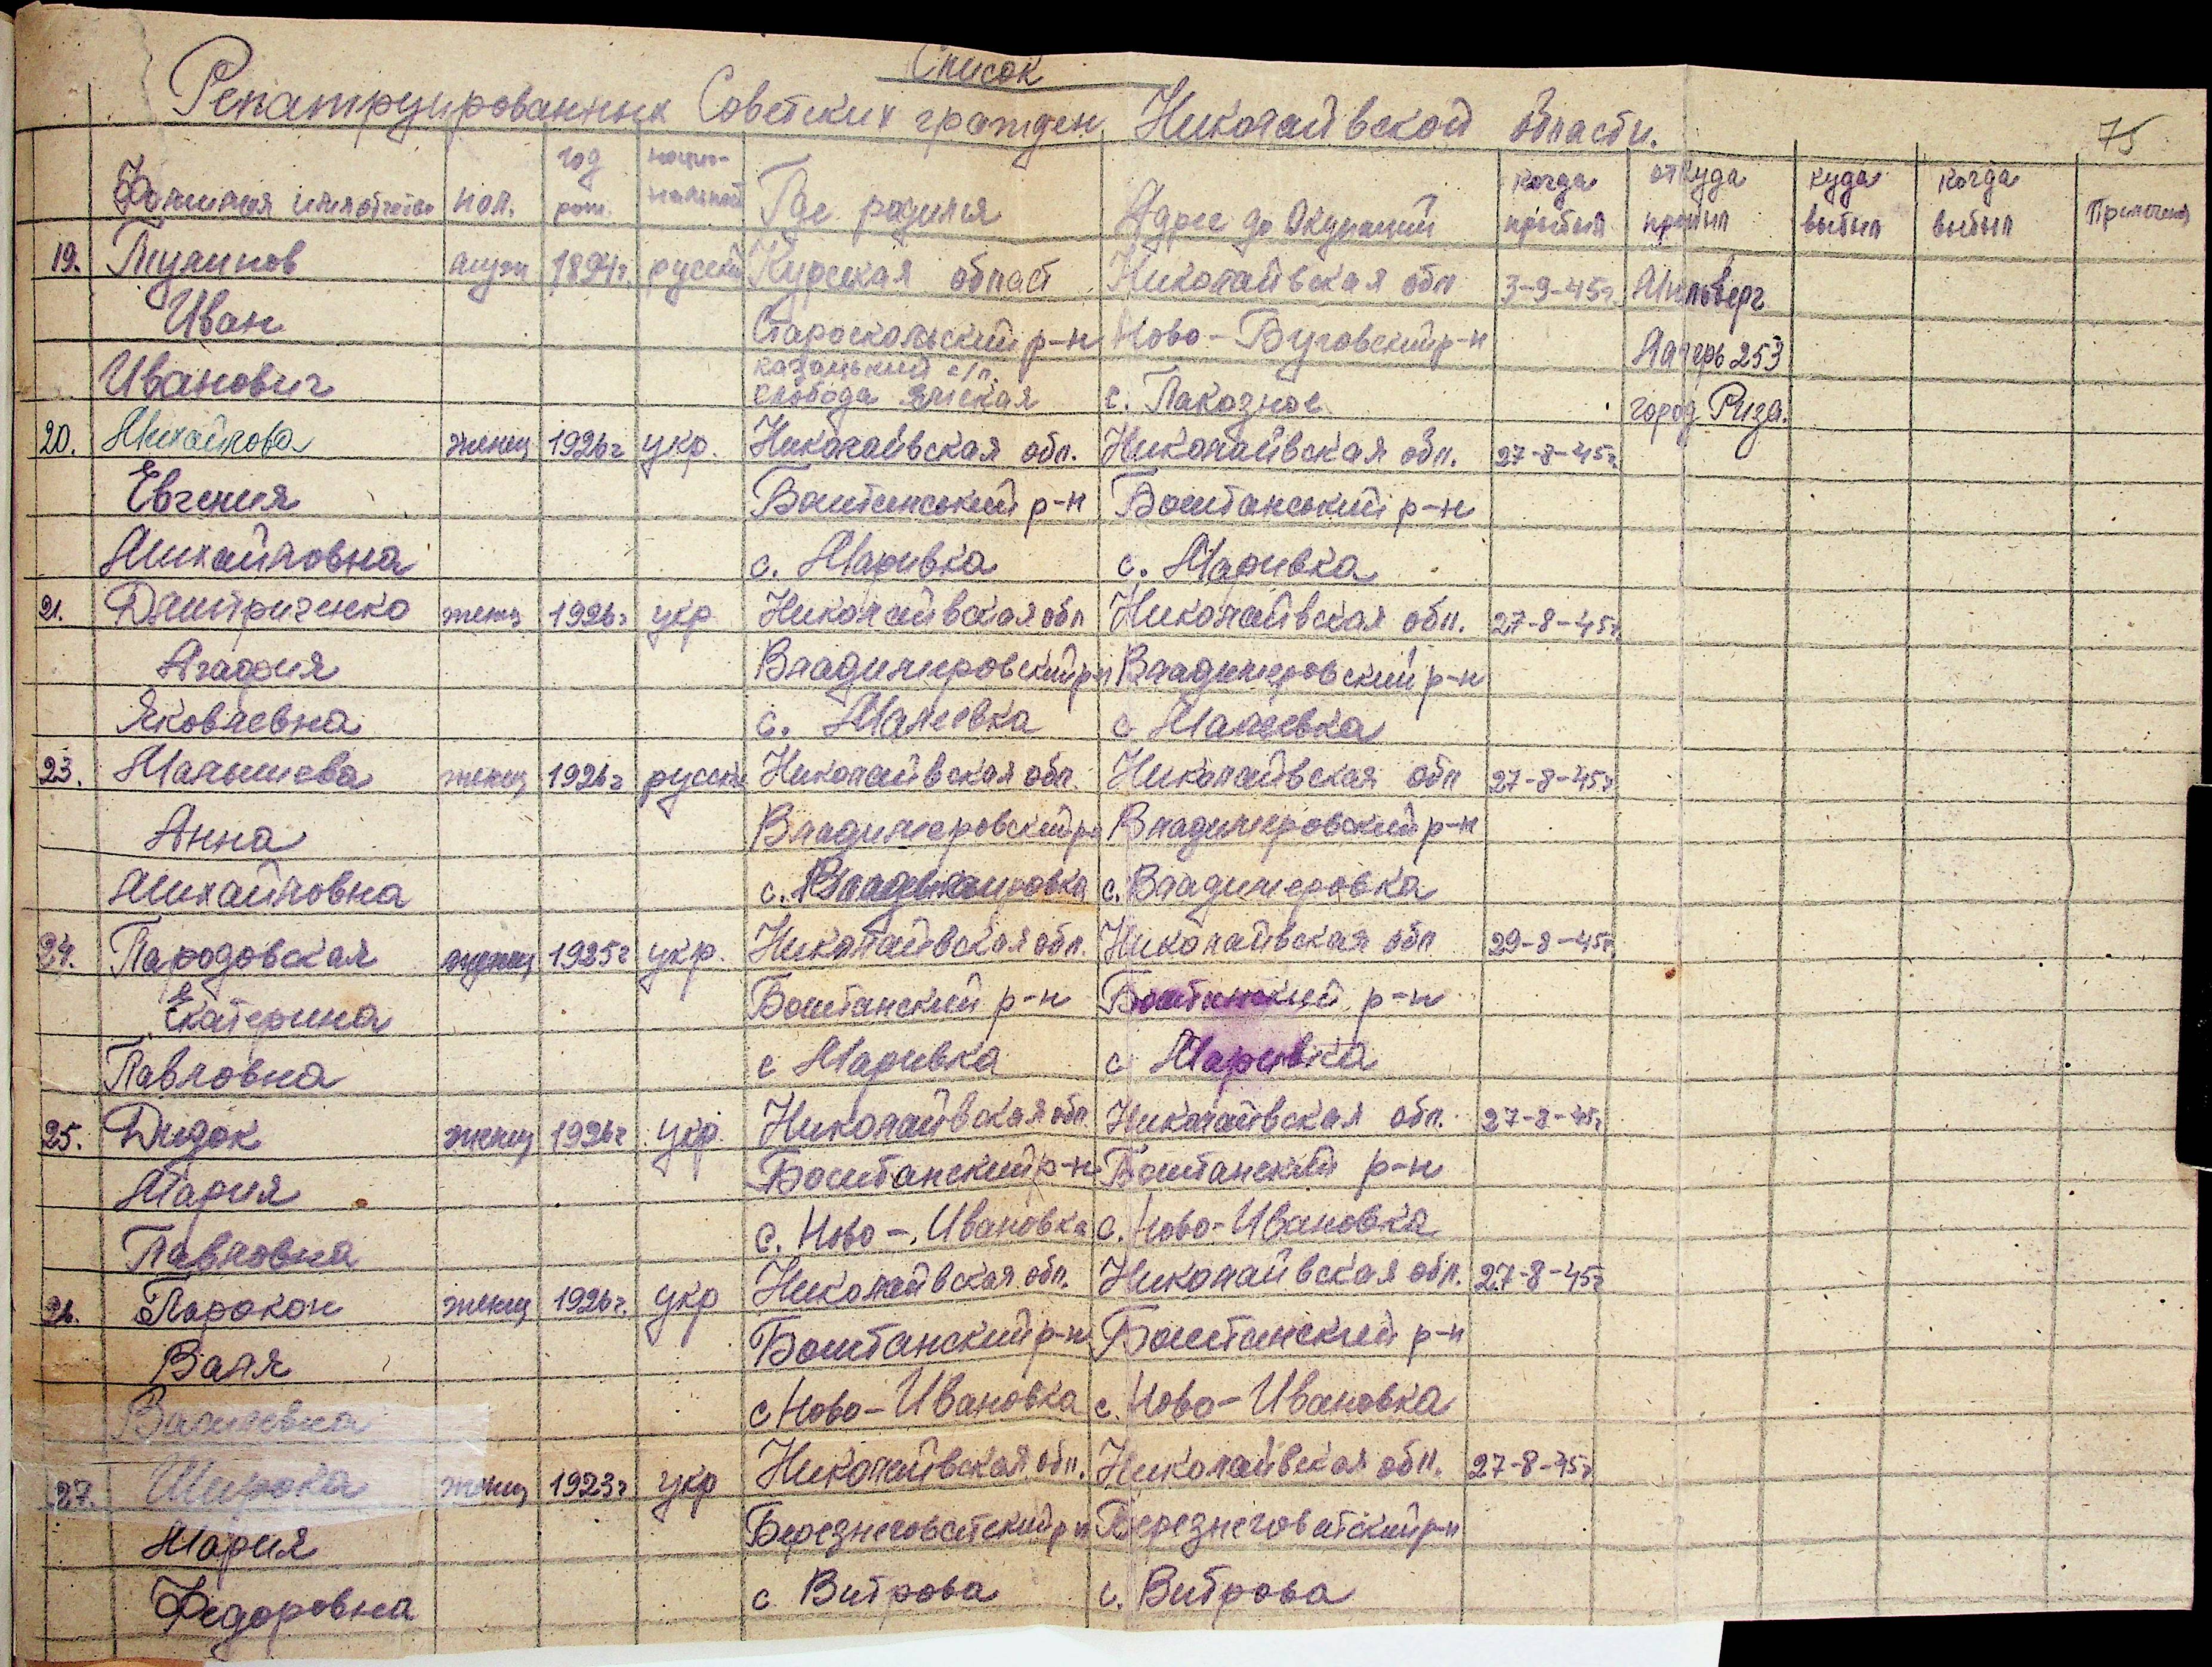 Список
Репатруированных Советских граждан Николайвской области.
75
Фамилия имя отчество пол. год рож. нацио-нальност Где родился Адрес до Окупаций когда прибыл откуда прибыл куда выбыл когда выбыл Примечен
19. Тулинов мужч 1894г. русский Курская област Николайвская обл 3-9-45г.
Иван Староскольский р-н Ново-Буговский р-н Лагерь 253
Иванович слобода Ямская с. Паказное город Риза.
20. Михайлова женщ 1926г укр. Николайвская обл. Николайвская обл. 27-8-45г.
Евгения Баштанський р-н Баштанський р-н
Михайловна с. Маривка с. Маривка
21. Дмитриченко женщ 1926г укр Николайвская обл Николайвская обл. 27-8-45г.
Агафия Владимеровский р-н Владимеровский р-н
Яковлевна с. Малеевка с Малеевка
23. Малышева женщ 1926г русск Николайвская обл. Николайвская обл 27-8-45г
Анна Владимеровский р-н Владимеровский р-н
Михайловна с. Владимировка с. Владимеровка
24. Пародовская женщ 1925г укр. Николайвская обл. Николайвская обл 29-8-45г.
Екатерина Баштанский р-н Баштанский р-н
Павловна с Маривка с Маривка
25. Дидок женщ 1926г укр. Николайвская обл. Николайвская обл. 27-8-45г
Мария Баштанский р-н Баштанский р-н
Павловна с. Ново-Ивановка с. Ново-Ивановка
26. Парокон женщ 1926г. укр Николайвская обл. Николайвская обл. 27-8-45г
Валя Баштанский р-н Баштанский р-н
Васильевна с Ново-Ивановка с. Ново-Ивановка
27. Широка женщ 1923г укр Николайвская обл. Николайвская обл. 27-8-45г
Мария Березнеговатский р-н Березнеговатский р-н
Федоровна с Витрова с. Витрова